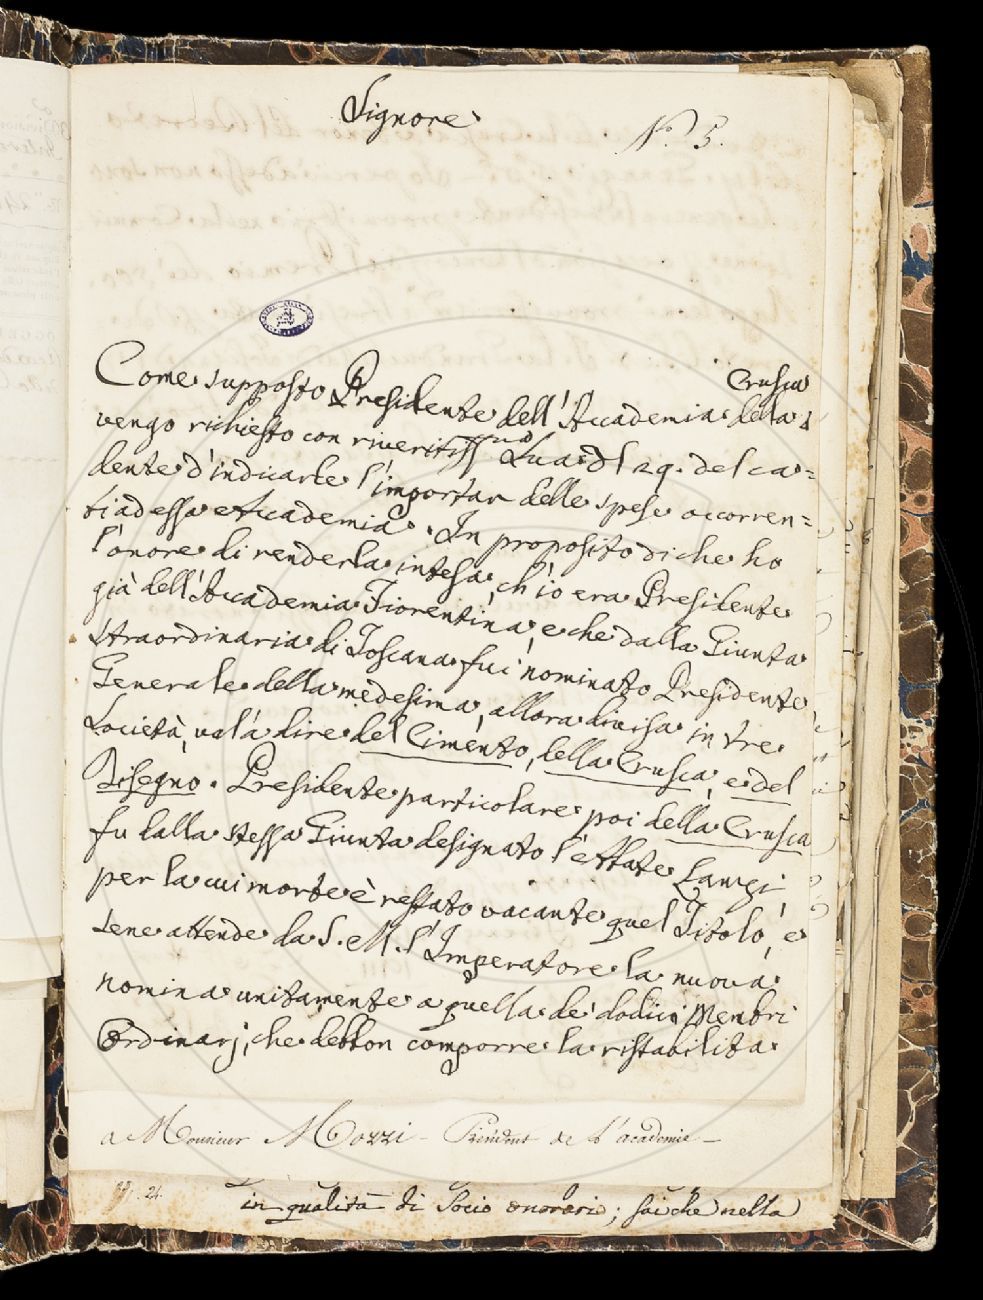 Signore
N.° 5.
Crusca
Come supposto Presidente dell'Accademia della
vengo richiesto con riveritiss.ma Sua dl 29. del ca=
dente d'indicarle l'importar delle spese occorren=
ti ad essa Accademia. In proposito di che ho
l'onore di renderla intesa, ch'io era Presidente
già dell'Accademia Fiorentina, e che dalla Giunta
Straordinaria di Toscana fui nominato Presidente
Generale della medesima, allora divisa in tre
Società, val'a dire del Cimento, della Crusca, e del
Disegno. Presidente particolare poi della Crusca
fu dalla stessa Giunta designato l'Abbate Lanzi,
per la cui morte è restato vacante quel Titolo, e
sene attende da S. M. l'Imperatore la nuova
nomina unitamente a quella de' dodici Membri
Ordinarj, che debbon comporre la ristabilita
a Monsieur Mozzi - Président de l'academie -
24
in qualità di Socio onorario; sai che nella